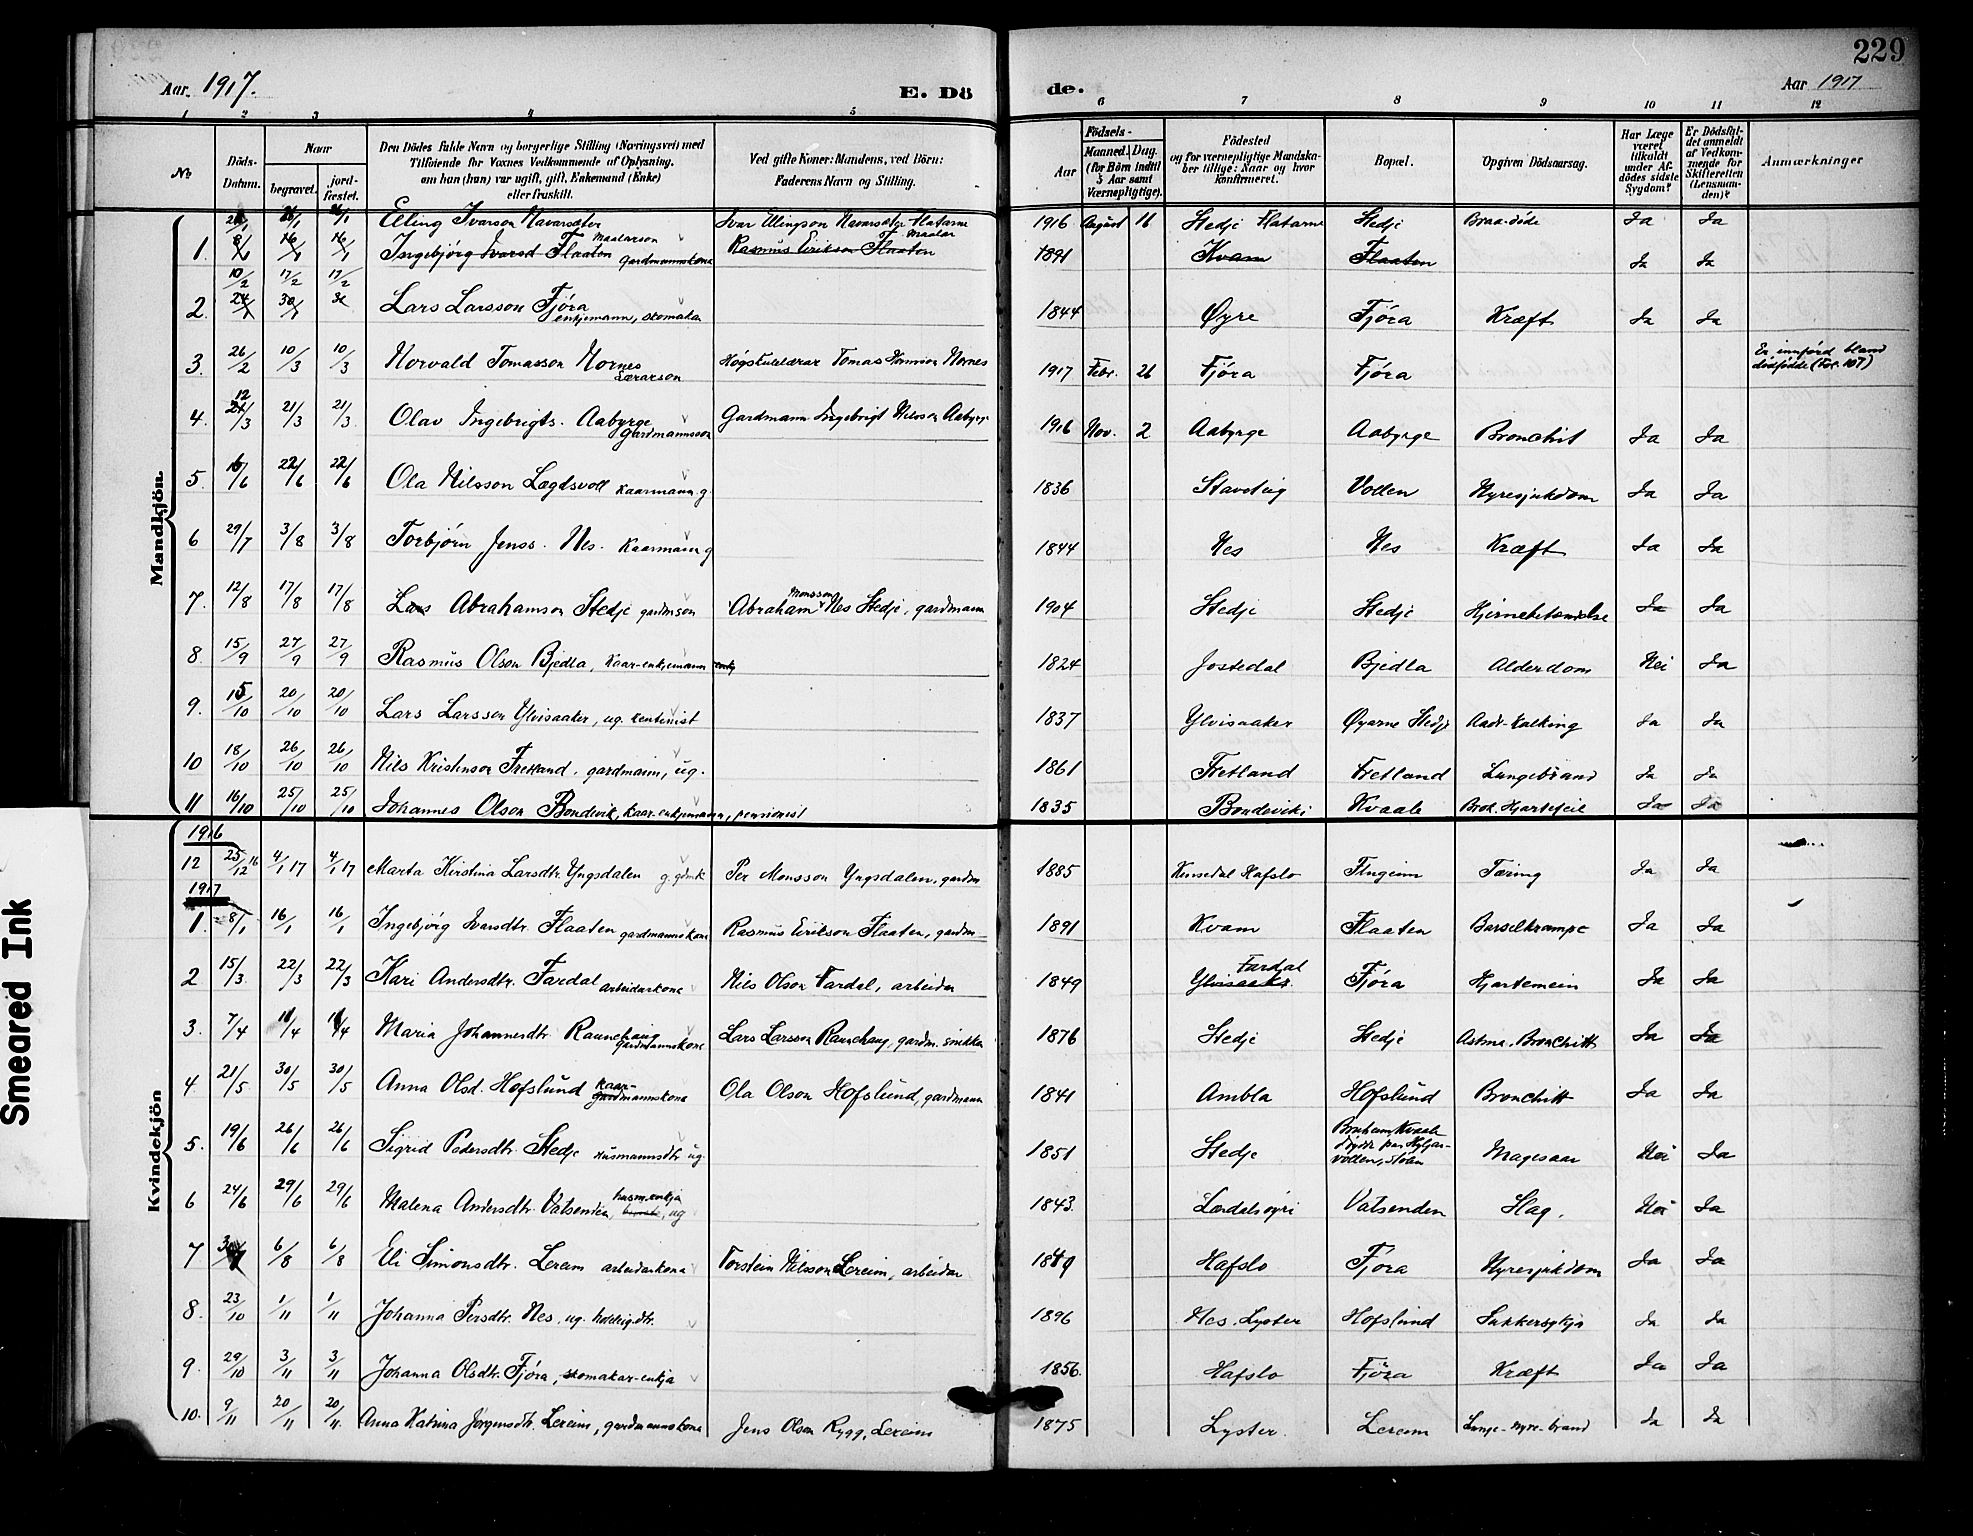 229
Aar. 1917.
E. Dö
de.
Aar 1917
1 2 3 4 5 6 7 8 9 10 11 12
No
Döds-Datum.
Naar
begravet.
jord-fæstet.
Den Dödes fulde Navn og borgerlige Stilling (Næringsvei) med
Tilföiende for Voxnes Vedkommende af Oplysning,
om han (hun) var ugift, gift, Enkemand (Enke)
eller fraskilt.
Ved gifte Koner: Mandens, ved Börn:
Faderens Navn og Stilling.
Födsels-
Aar
Maaned. Dag.
(for Börn indtil
5 Aar samt
Værnepligtige).
Födested
og for værnepligtige Mandska-
ber tillige: Naar og hvor
konfirmeret.
Bopæl.
Opgiven Dödsaarsag.
Har Læge
været
tilkaldt
under Af-
dödes sidste
Sygdom?
Er Dödsfal-
det anmeldt
af Vedkom-
mende for
Skifteretten
(Lensman-
den)?
Anmærkninger
Mandkjön.
Elling Ivarson Navarsæter Ivar Ellingson Navarsæter Flatarne 1916 August 11 Stedje Flatarne Stedje Braa-döde Ja Ja
Maalarson maalar
1. 8/1 16/1 16/1 Ingebjörg Ivarsd Flaaten gardmannskona Rasmus Eirikson Flaaten 1891 Kvam Flaaten Ja Ja
10/2 17/2 17/2
2. Lars Larsson Fjöra 1844 Øyre Fjöra Kræft Ja Ja
enkjemann, skomakar
3. 26/2 10/3 10/3 Norvald Tomasson Nornes Högskulelærar Tomas Nornes 1917 Febr. 26 Fjöra Fjöra Er innförd bland
Lærarson dödfödde (Fol. 107)
4. 12/3 21/3 21/3 Olav Ingebrigts. Aabyrge Gardmann Ingebrigt Nilsson Aabyrge 1916 Nov. 2 Aabyrge Aabyrge Bronchit Ja Ja
Gardmannsson
5. 16/6 22/6 22/6 Ola Nilsson Lægdsvoll kaarmann g. 1836 Stavteig Vollen Nyresjukdom Ja Ja
6 29/7 3/8 3/8 Torbjörn Jenss. Nes. Kaarmann g 1844 Nes Nes Kræft Ja Ja
Monsson
7. 12/8 17/8 17/8 Lars Abrahamson Stedje gardmson Abraham Nes Stedje, gardmann 1904 Stedje Stedje Hjernebetændelse Ja Ja
8. 15/9 27/9 27/9 Rasmus Olson Bjedla, kaar-enkjemann 1824 Jostedal Bjedla Alderdom Nei Ja
9. 15/10 20/10 20/10 Lars Larsson Ylvisaaker, ug. kentenist 1837 Ylvisaaker Øyarne Stedje Aadr-kalking Ja Ja
10 18/10 26/10 26/10 Nils Kristenson Fretland, gardmann, ug. 1861 Fretland Fretland Lungebrand Ja Ja
11 16/10 25/10 25/10 Johannes Olson Bondevik, kaar-enkjemann, pensionist 1835 Bondeviki Kvaale Brok. Hjartefeil Ja Ja
Kvindekjön
1916
12 25/12 16 4/1 17 4/1 17 Marta Kirstina Larsdtr Yngsdalen g. gdmk Per Monsson Yngsdalen, gardm 1885 Kinsedal Hafslo Flugeim Tæring Ja Ja
1917
1. 8/1 16/1 16/1 Ingebjörg Ivarsdtr. Flaaten gardmannskone Rasmus Eirikson Flaaten, gardm 1891 Kvam Flaaten Barselkrampe Ja Ja
Fardal
2 15/3 22/3 22/3 Kari Andersdtr. Fardal arbeidarkone Nils Olson Fardal, arbeidar 1849 Ylvisaaker Fjöra Hjartemein Ja Ja
3. 7/4 Maria Johannesdtr Raunehaug Lars Larsson Raunehaug, gardm. snikkar 1876 Stedje Stedje Astma. Bronchitt Ja Ja
gardmannskone
4 21/5 30/5 30/5 Anna Olsd. Hofslund kaar-gardmannskona Ola Olson Hofslund, gardmann 1841 Ambla Hofslund Bronchitt Ja Ja
5. 19/6 26/6 26/6 Sigrid Pedersdtr. Stedje husmannsdtr ug. 1851 Stedje Kvaale Magesaar Nei Ja
6 24/6 29/6 29/6 Malena Andersdtr. Vatsenden, husm.enkja ug 1843. Lærdalsöyri Vatsenden Slag. Nei Ja
7 6/8 6/8 Eli Simonsdtr. Lereim arbeidarkona Torstein Nilsson Lereim, arbeidar 1849 Hafslo Fjöra Nyresjukdom Ja Ja
8. 23/10 1/11 1/11 Johanna Persdtr. Nes, ug. 1896 Nes. Lyster Hofslund Sukkersykja Ja Ja
9. 29/10 3/11 3/11 Johanna Olsdtr. Fjöra, skomakar-enkja 1856. Hafslo Fjöra Kræft Ja Ja
10. 9/11 20/11 20/11. Anna Katrina Jörgensdtr. Lereim, gardmannskona Jens Olson Rygg, Lereim 1875 Lyster. Lereim Lunge-nyre-brand Ja Ja
Smeared Ink